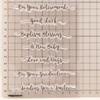 On Your Retirement
Good Luck
Baptism Blessings
A New Baby
Love and Hugs
On Your Graduation
Sending You a Prayer